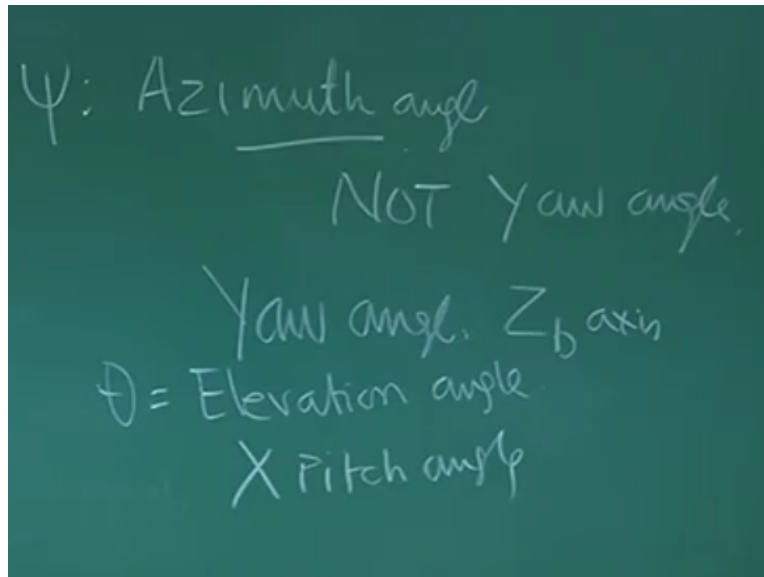 Ψ: Azimuth angle
NOT Yaw angle.
Yaw angl. Z_b axis
θ = Elevation angle
X Pitch angle